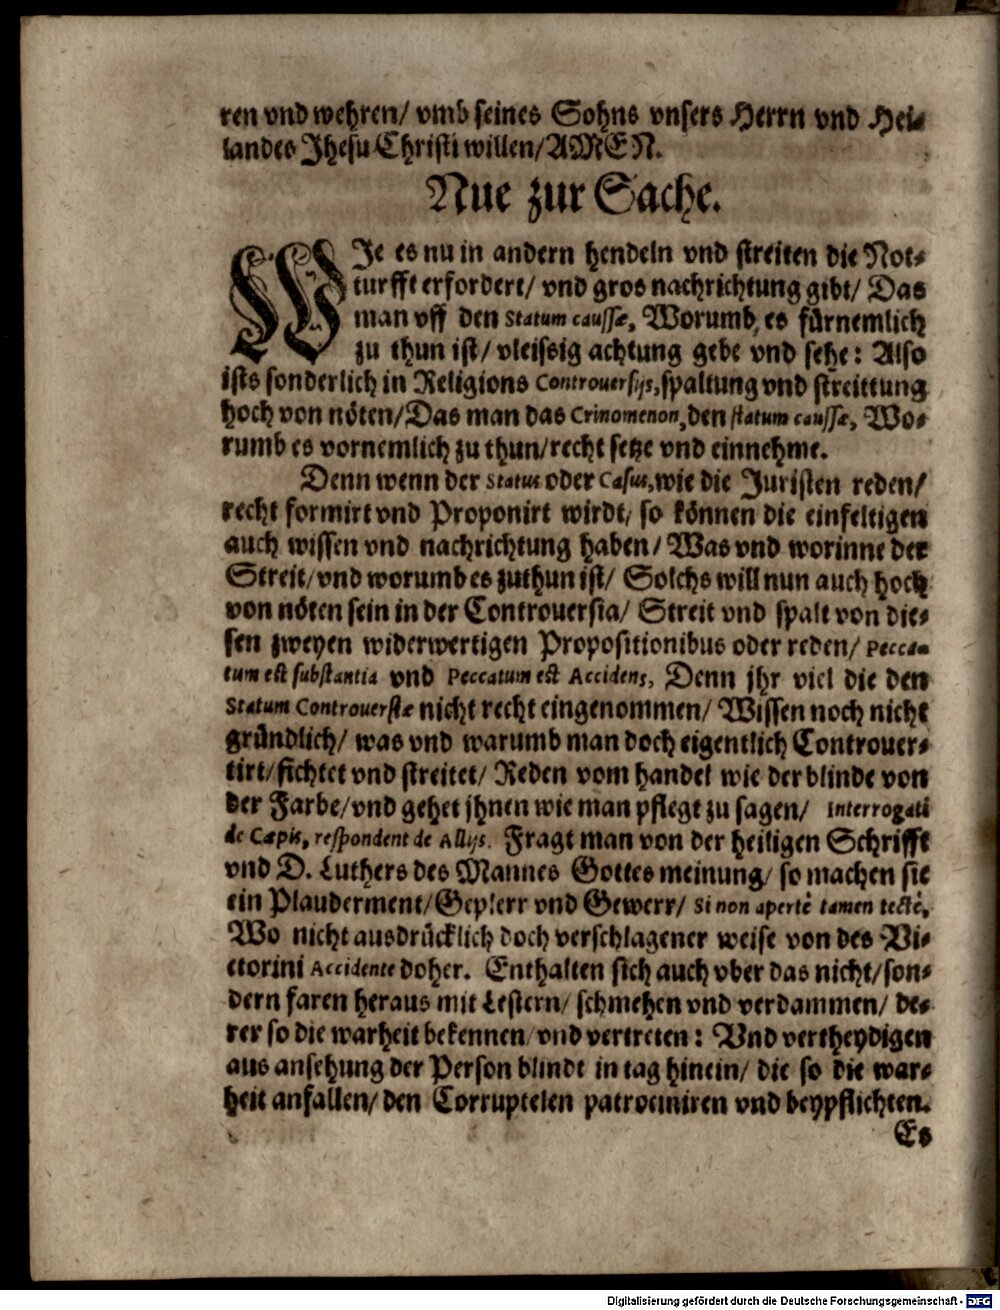 ren vnd wehren/ vmb seines Sohns vnsers Herrn vnd Hei-
landes Jhesu Christi willen/ AMEN.
Nue zur Sache.
WJe es nu in andern hendeln vnd streiten die Not-
turfft erfordert/ vnd gros nachrichtung gibt/ Das
man vff den Statum caussæ, Worumb es fürnemlich
zu thun ist/ vleissig achtung gebe vnd sehe: Also
ists sonderlich in Religions Controuersijs, spaltung vnd streittung
hoch von nöten/ Das man das Crinomenon, den statum caussæ, Wo-
rumb es vornemlich zu thun/ recht setze vnd einnehme.
Denn wenn der Status oder Casus, wie die Juristen reden/
recht formirt vnd Proponirt wirdt/ so können die einfeltigen
auch wissen vnd nachrichtung haben/ Was vnd worinne der
Streit/ vnd worumb es zuthun ist/ Solchs will nun auch hoch
von nöten sein in der Controuersia/ Streit vnd spalt von die-
sen zweyen widerwertigen Propositionibus oder reden/ Pecca-
tum est substantia vnd Peccatum est Accidens, Denn jhr viel die den
Statum Controuersiæ nicht recht eingenommen/ Wissen noch nicht
gründlich/ was vnd warumb man doch eigentlich Controuer-
tirt/ fichtet vnd streitet/ Reden vom handel wie der blinde von
der Farbe/ vnd gehet jhnen wie man pflegt zu sagen/ Interrogati
de Cæpis, respondent de Allijs. Fragt man von der heiligen Schrifft
vnd D. Luthers des Mannes Gottes meinung/ so machen sie
ein Plauderment/ Geplerr vnd Gewerr/ Si non apertè tamen tectè,
Wo nicht ausdrücklich doch verschlagener weise von des Vi-
ctorini Accidente doher. Enthalten sich auch vber das nicht/ son-
dern faren heraus mit Lestern/ schmehen vnd verdammen/ de-
rer so die warheit bekennen vnd vertreten: Vnd vertheydigen
aus ansehung der Person blindt in tag hinein/ die so die war-
heit anfallen/ den Corruptelen patrociniren vnd beypflichten.
Es
Digitalisierung gefördert durch die Deutsche Forschungsgemeinschaft - DFG